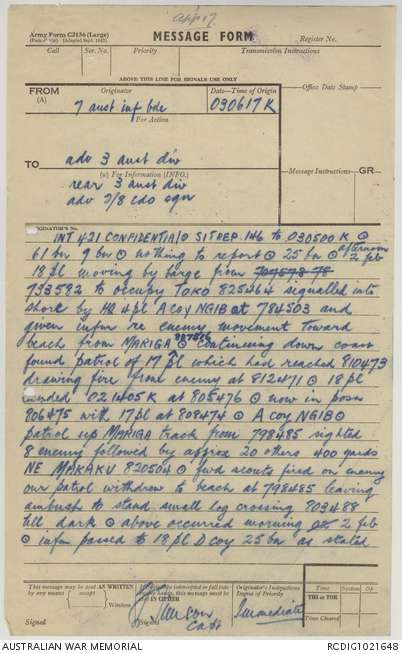 App 17
Army Form C2136 (Large)
MESSAGE FORM
Register No.
Call
Ser. No.
Priority
Transmission Instructions
ABOVE THIS LINE FOR SIGNALS USE ONLY
FROM
(A)
Originator
Date—Time of Origin
Office Date Stamp
7 aust inf bde
030617K
For Action
TO
adv 3 aust div
(W) For Information (INFO.)
Message Instructions
GR
rear 3 aust div
adv 2/8 cdo sqn
Originator's No.
INT 421 CONFIDENTIAL ⊙ SITREP 146 to 030500 K ⊙
61 bn 9 bn ⊙ nothing to report ⊙ 25 bn ⊙ afternoon 2 feb
18 pl moving by barge from
733582 to occupy TOKO 825464 signalled into
shore by HQ 4 pl A coy NGIB at 784503 and
given infm re enemy movement toward
beach from MARIGA 807526 ⊙ continuing down coast
found patrol of 17 pl which had reached 810473
drawing fire from enemy at 812471 ⊙ 18 pl
landed 021405K at 805476 ⊙ now in posn
806475 with 17 pl at 808474 ⊙ A coy NGIB ⊙
patrol up MARIGA track from 798485 sighted
8 enemy followed by approx 20 others 400 yards
NE MAKAKU 820504 ⊙ fwd scouts fired on enemy
our patrol withdrew to beach at 798485 leaving
ambush to stand small log crossing 809488
till dark ⊙ above occurred morning 2 feb
⊙ infm passed to 18 pl D coy 25 bn as stated
This message may be sent AS WRITTEN by any means
except
Wireless
Signed
If liable to be intercepted or fall into enemy hands, this message must be sent IN CIPHER
Signed
Capt
Originator's Instructions
Degree of Priority
Immediate
Time
System
Op
THI or TOR
Time Cleared
AUSTRALIAN WAR MEMORIAL
RCDIG1021648